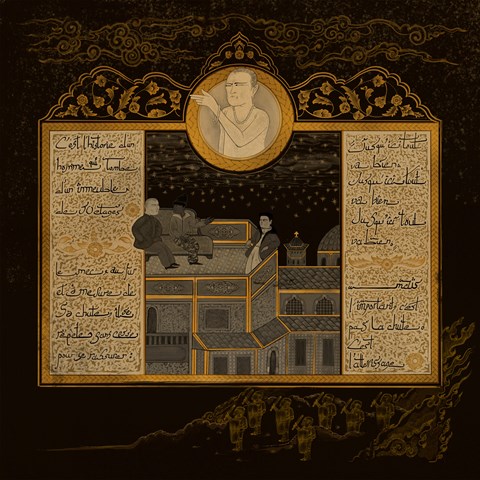 C'est l'histoire d'un
homme qui tombe
d'un immeuble
de 50 étages
le mec, au fur
et à mesure de
sa chute, il se
répète sans cesse
pour se rassurer :
Jusqu'ici tout
va bien,
Jusqu'ici tout
va bien
Jusqu'ici tout
va bien,
mais
l'important, c'est
pas la chute,
C'est
l'atterrissage